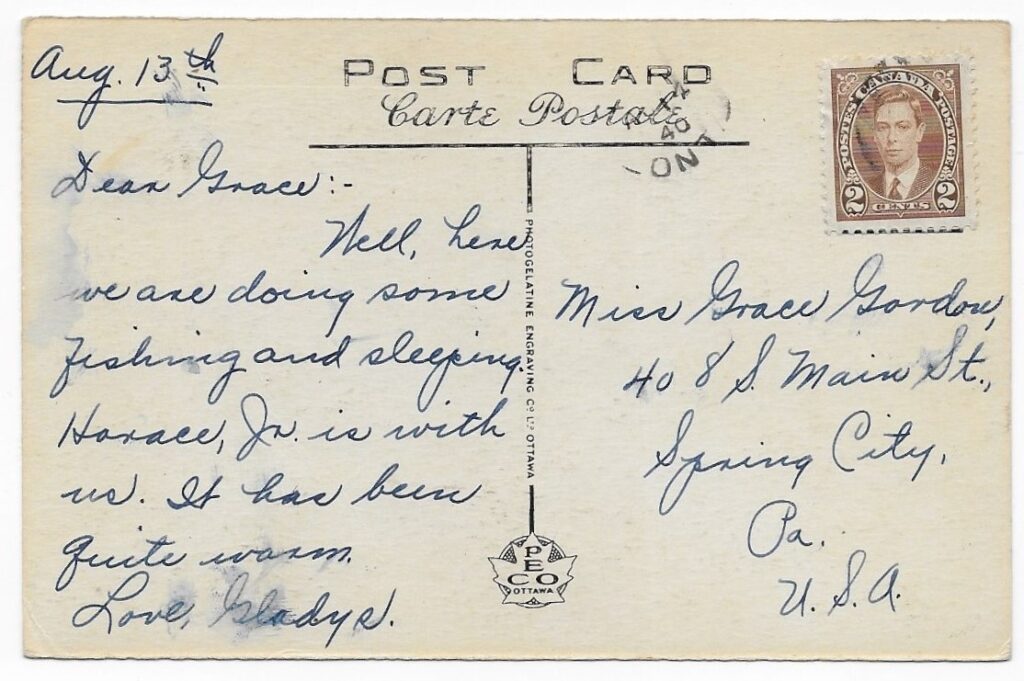 Aug. 13th
POST CARD
Carte Postale
40
ONT
POSTES CANADA POSTAGE
2 CENTS 2
Dear Grace:-
Well, here
we are doing some
fishing and sleeping.
Horace, Jr. is with
us. It has been
quite warm.
Love, Gladys.
PHOTOGELATINE ENGRAVING CO LTD OTTAWA
PECO
OTTAWA
Miss Grace Gordon,
408 S. Main St.,
Spring City,
Pa.
U.S.A.